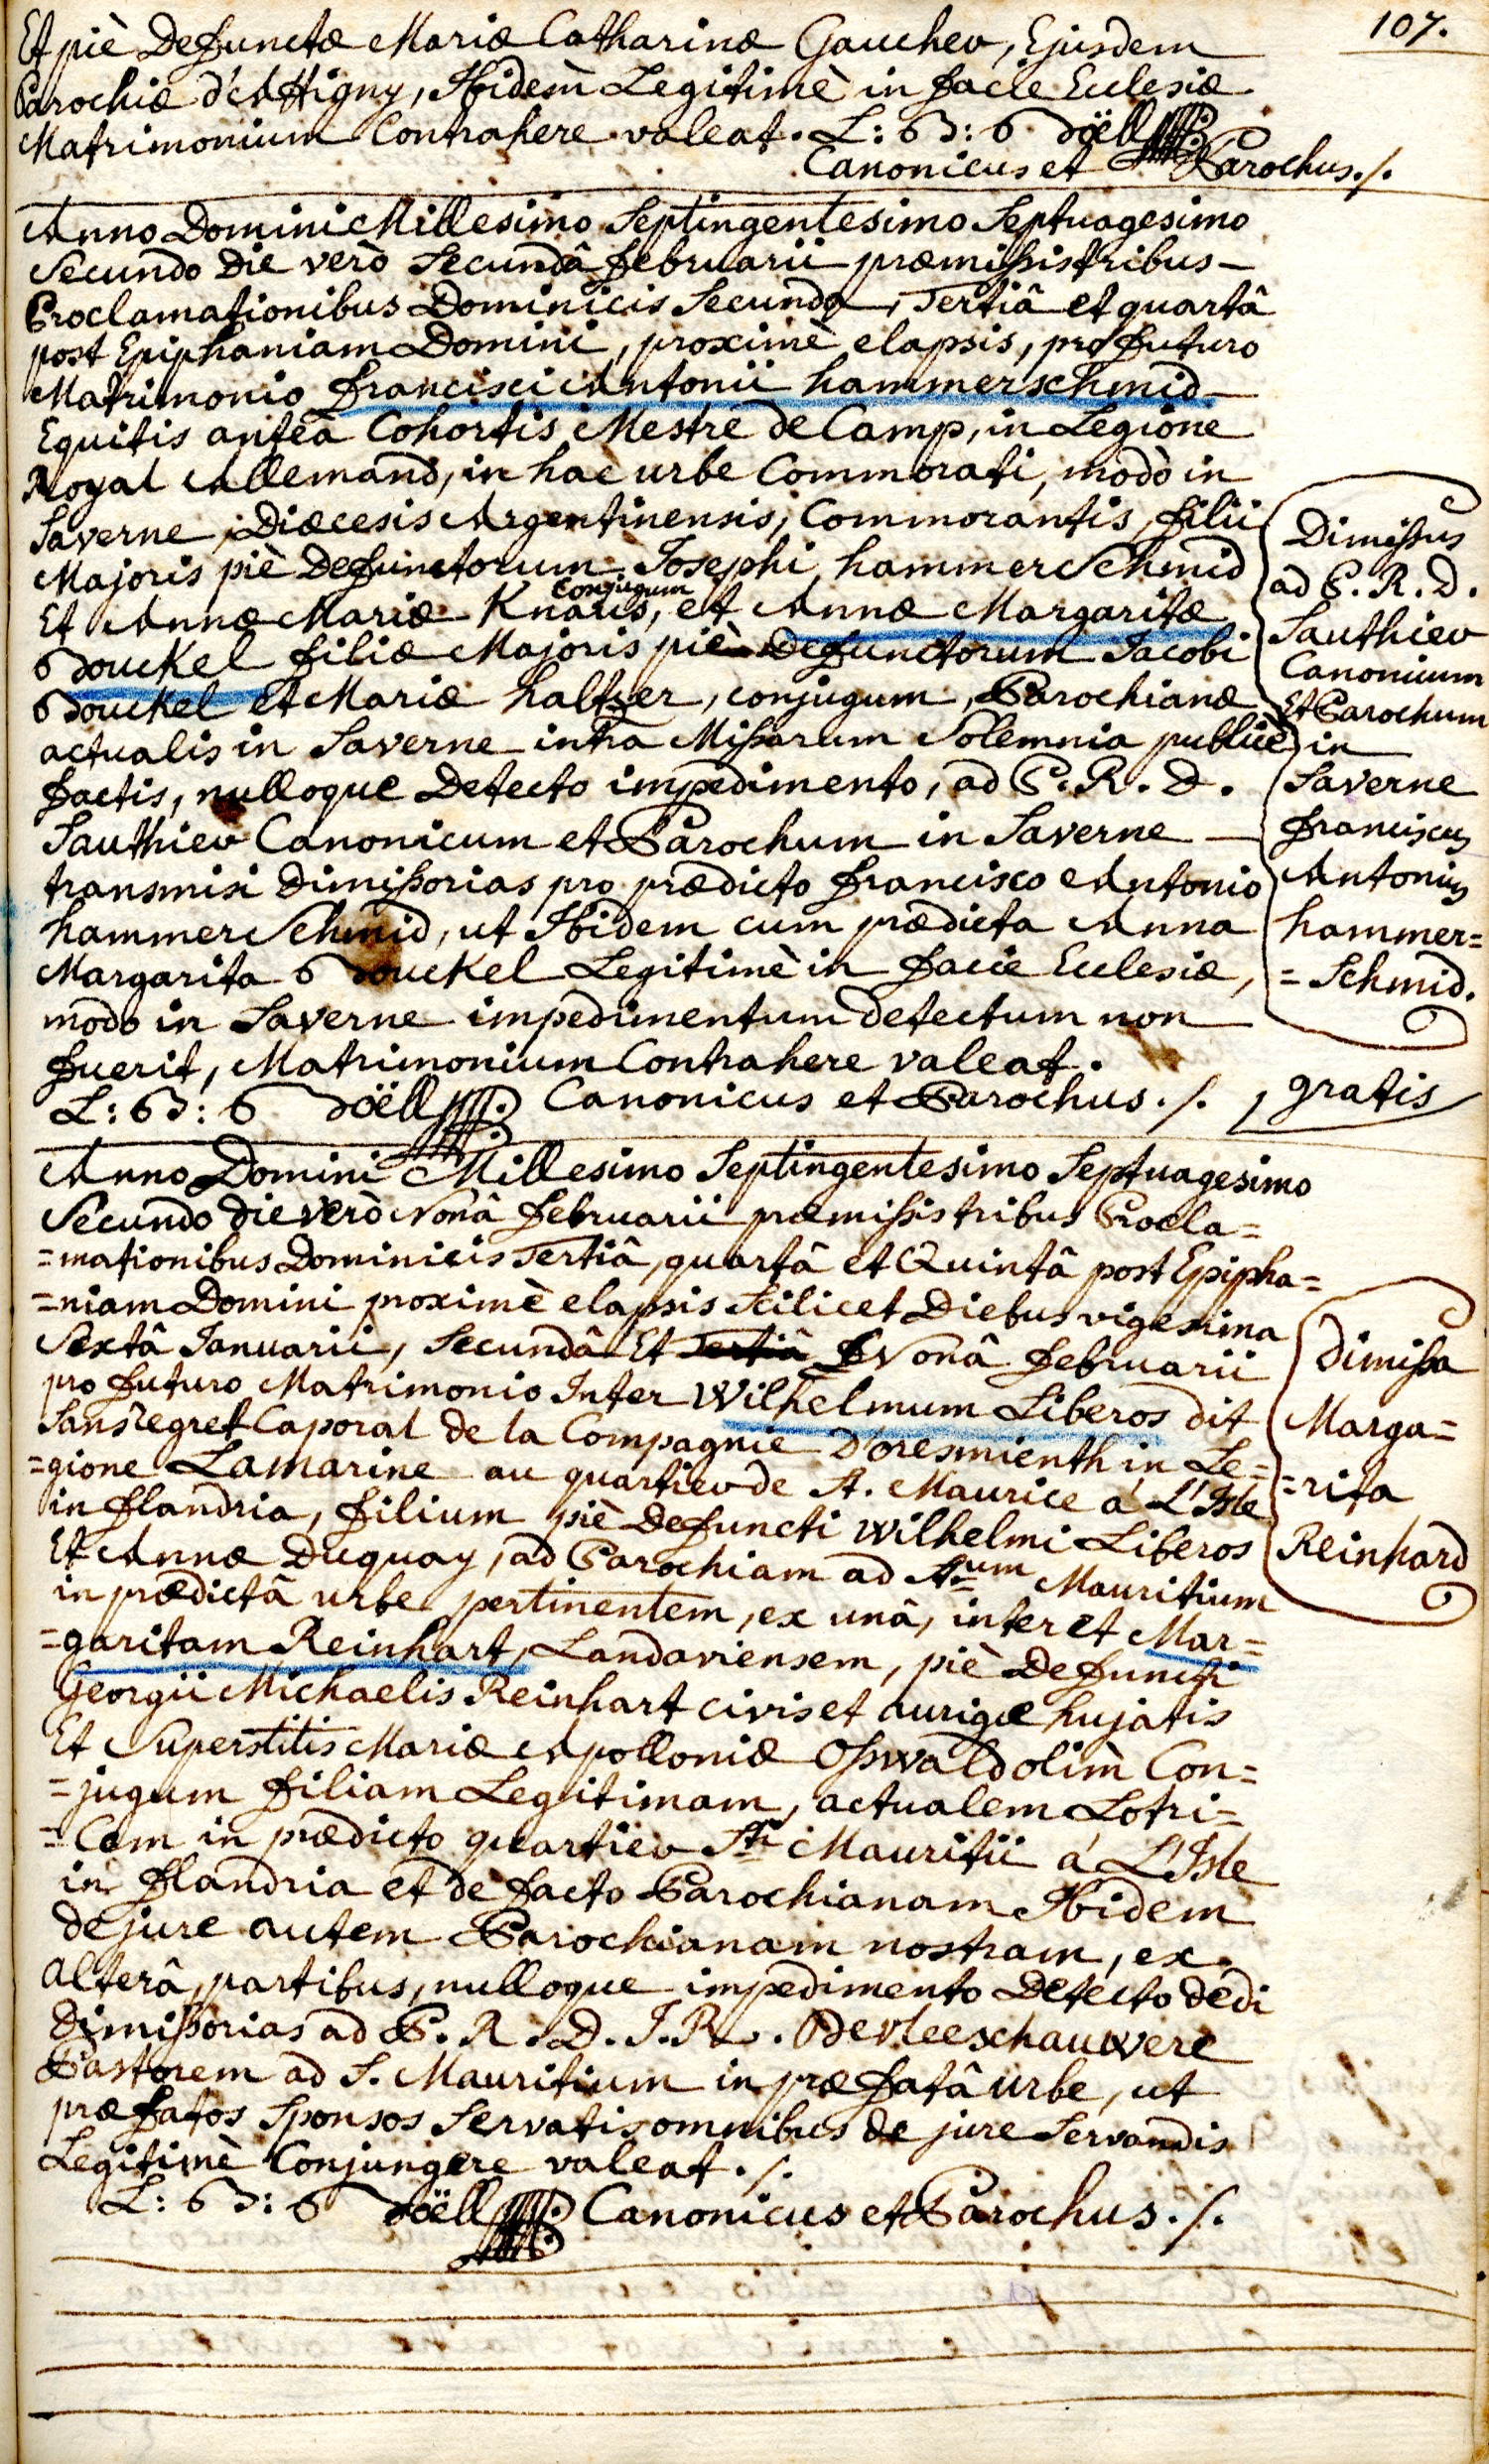 107.
Et piè Defunctæ Mariæ Catharinæ Gaucher, Ejusdem
Parochiæ d'Attigny, Ibidem Legitimè in facie Ecclesiæ
Matrimonium Contrahere valeat. L: B: Böell
Canonicus et Parochus./.
Anno Domini Millesimo Septingentesimo Septuagesimo
Secundo Die verò Secundâ februarii præmissis tribus
Proclamationibus Dominicis Secunda, Tertiâ et quartâ
post Epiphaniam Domini, proximè elapsis, pro futuro
Matrimonio francisci Antonii hammerschmid
Equitis antea Cohortis Mestre de Camp, in Legione
Royal Allemand, in hac urbe Commorati, modò in
Saverne, Diæcesis Argentinensis, Commorantis, filii
Majoris piè Defunctorum Josephi hammerSchmid
Conjugum
Et Annæ Mariæ Knaus, et Annæ Margaritæ
Bouckel filiæ Majoris piè Defunctorum Jacobi
Bouckel et Mariæ haltzer, conjugum, Parochianæ
actualis in Saverne intra Missarum Solemnia publicè
factis, nulloque Detecto impedimento, ad P. R. D.
Sauthier Canonicum et Parochum in Saverne
transmisi Dimissorias pro prædicto francisco Antonio
hammerSchmid, ut Ibidem cum prædicta Anna
Margarita Bouckel Legitimè in facie Ecclesiæ,
modo in Saverne impedimentum detectum non
fuerit, Matrimonium Contrahere valeat.
L: B: Böell Canonicus et Parochus./.
Dimissus
ad P. R. D.
Sauthier
Canonicum
Et Parochum
in
Saverne
franciscus
Antonius
hammer=
=Schmid.
gratis
Anno Domini Millesimo Septingentesimo Septuagesimo
Secundo die verò Nonâ februarii præmissis tribus Procla=
=mationibus Dominicis Tertiâ, quartâ et Quintâ post Epipha=
=niam Domini proximè elapsis Scilicet Diebus vigesima
Sextâ Januarii, Secundâ Et Tertiâ Nonâ februarii
pro futuro Matrimonio Inter Wilhelmum Liberos dit
Sansregret Caporal de la Compagnie D'oresmienth in Le=
=gione Lamarine au quartier de St. Maurice á L'Isle
in flandria, filium piè Defuncti Wilhelmi Liberos
Et Annæ Duquay, ad Parochiam ad Stum Mauritium
in prædictâ urbe pertinentem, ex unâ, inter et Mar=
=garitam Reinhart, Landaviensem, piè Defuncti
Georgii Michaelis Reinhart civis et aurigæ hujatis
Et Superstitis Mariæ Apolloniæ Osswald olim Con=
=jugum filiam Legitimam, actualem Lotri=
=Cem in prædicto quartier Sti Mauritii á L'Isle
in flandria et de facto Parochianam Ibidem
de jure autem Parochianam nostram, ex
alterâ, partibus, nulloque impedimento Detecto dedi
Dimissorias ad P. R. D. J. R. Devleeschauwere
Pastorem ad S. Mauritium in præfatâ urbe, ut
præfatos Sponsos Servatis omnibus de jure Servandis
Legitimè Conjungere valeat./.
L: B: Böell Canonicus et Parochus./.
Dimissa
Marga=
=rita
Reinhard